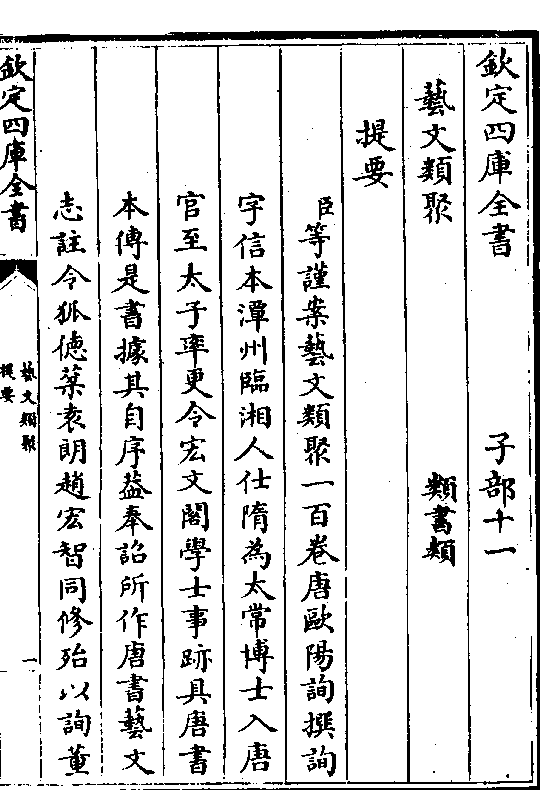 欽定四庫全書 子部十一
藝文類聚 類書類
提要
臣等謹案藝文類聚一百卷唐歐陽詢撰詢
字信本潭州臨湘人仕隋為太常博士入唐
官至太子率更令宏文閣學士事跡具唐書
本傳是書據其自序葢奉詔所作唐書藝文
志註令狐徳棻袁朗趙宏智同修殆以詢董
欽定四庫全書
藝文類聚
提要
一